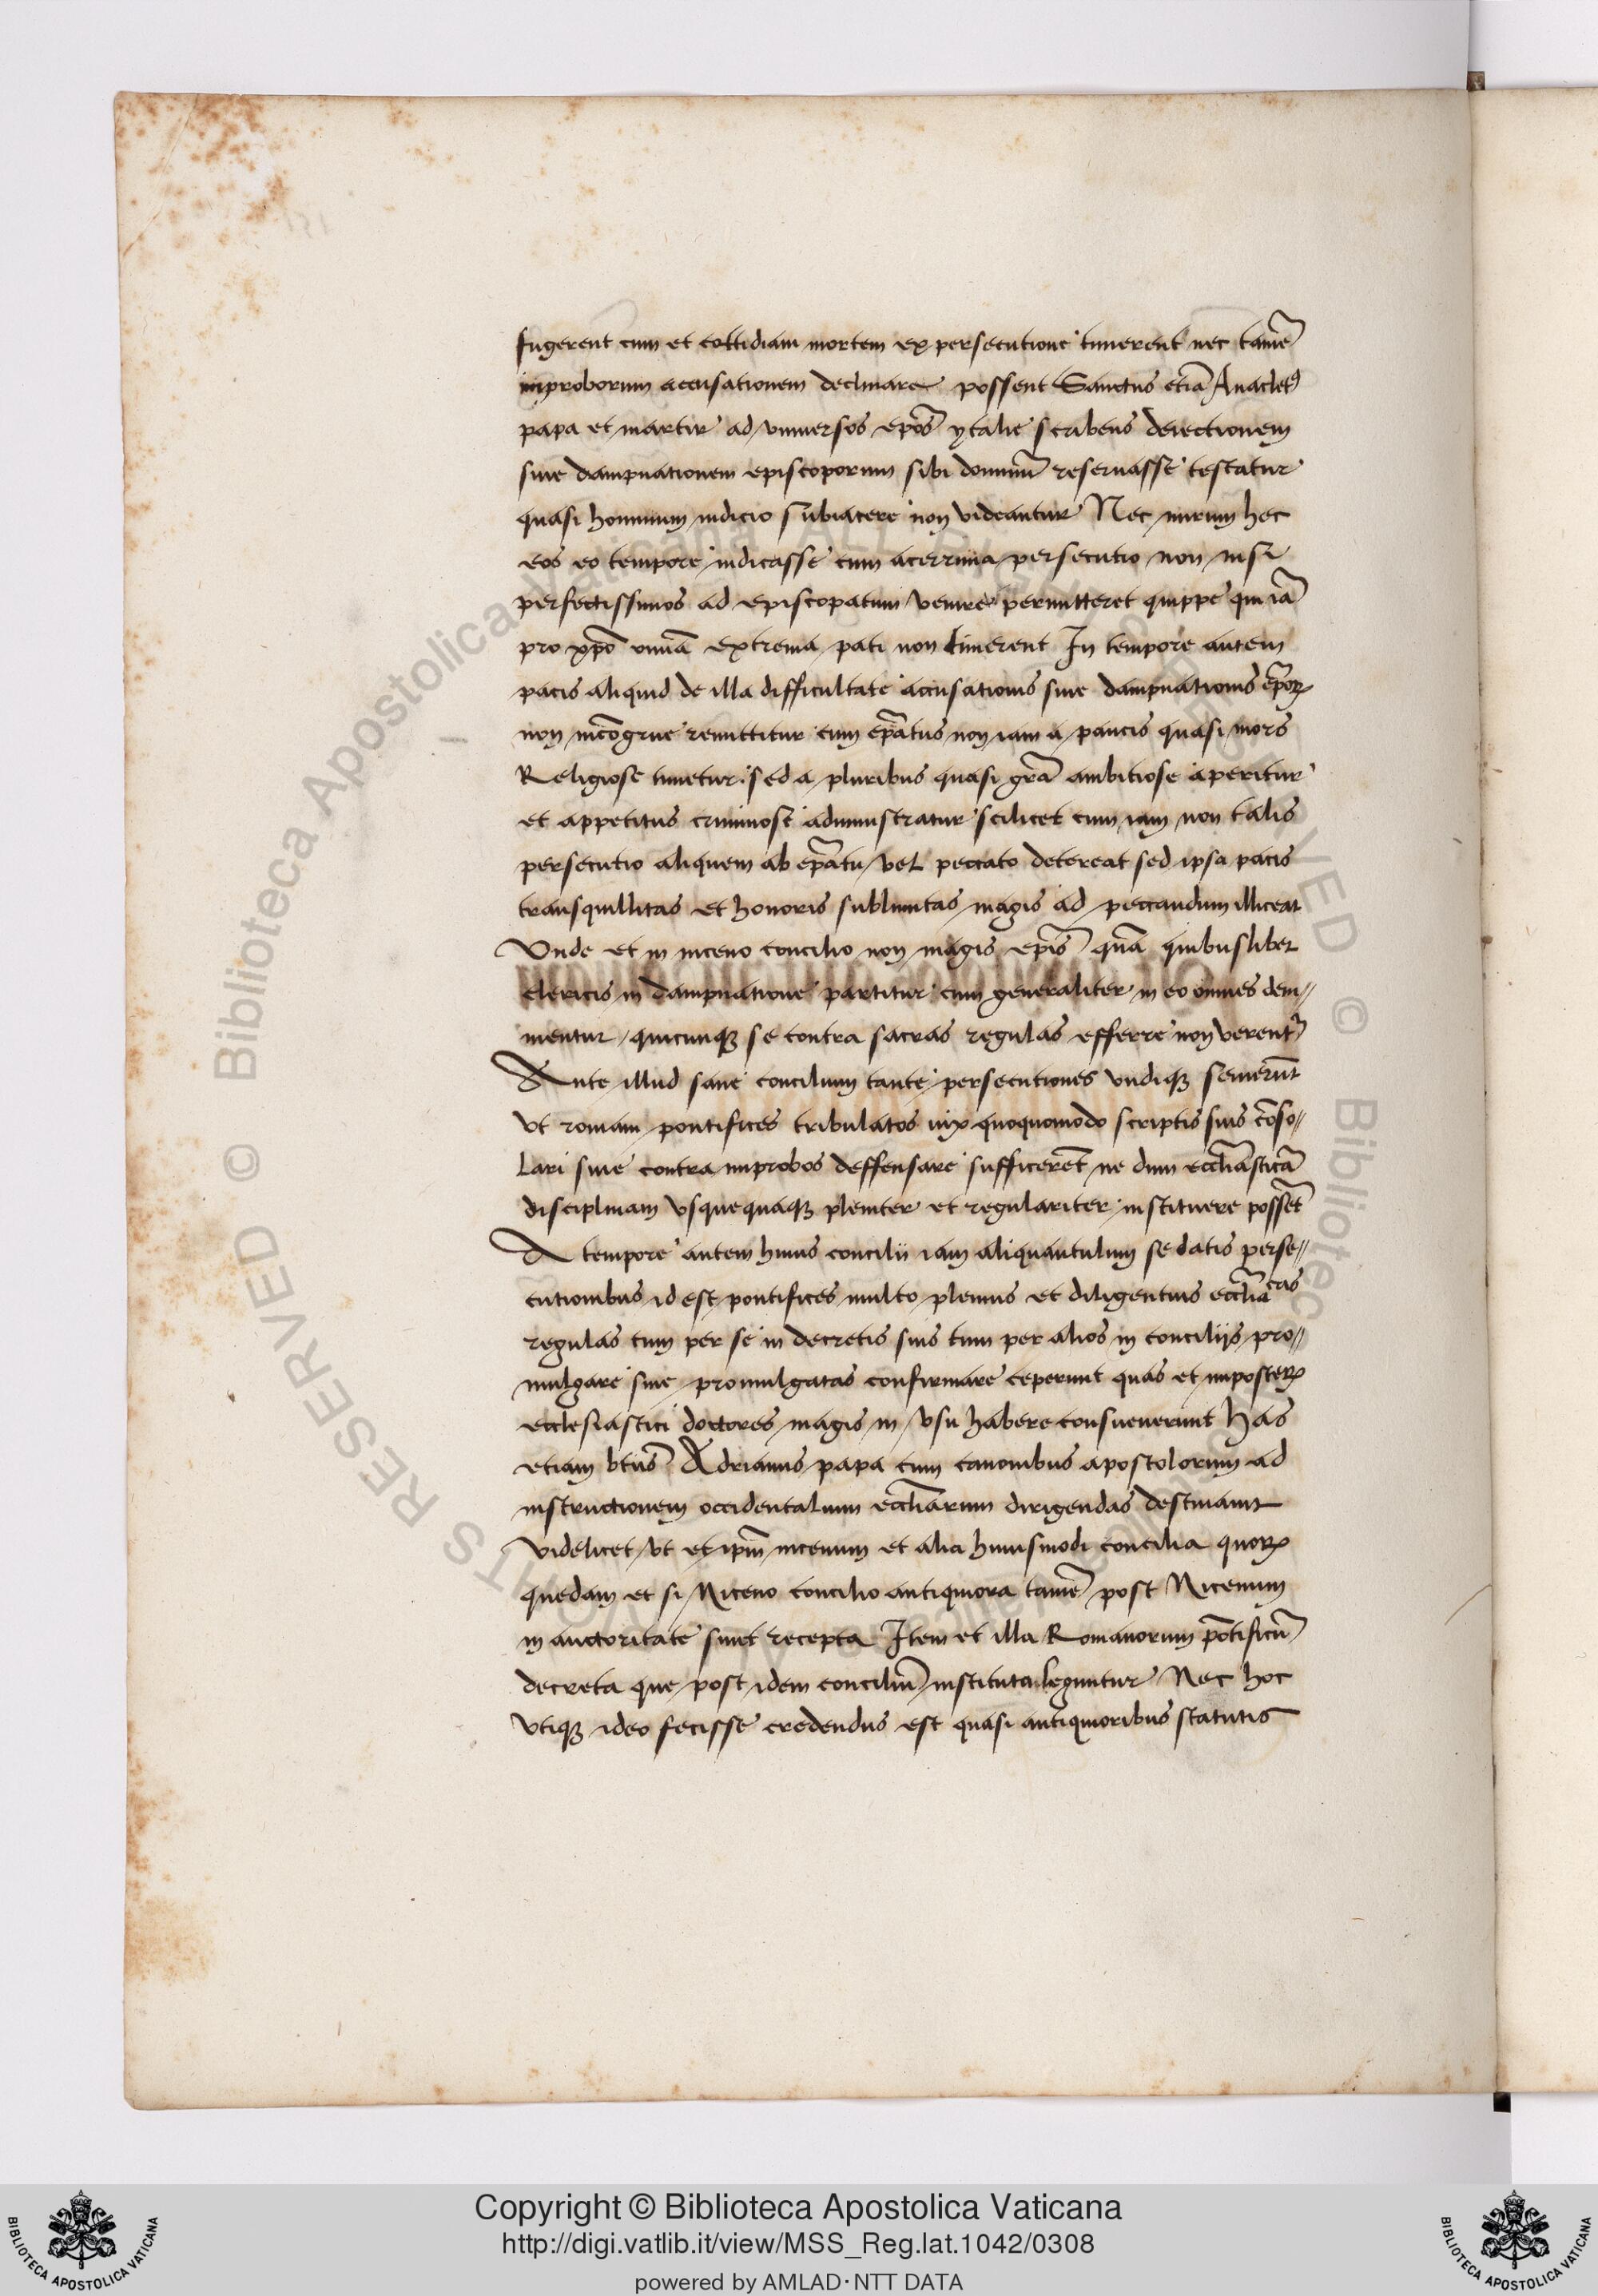 fugerent cum et cottidiam mortem ex persecutione timerent nec tamē
improborum accusationem declinare possent Sanctus etiā Anaclet9
papa et martir ad vniuersos ep̄os ytalie scribens deiectionem
siue dampnationem episcoporum sibi dominū reseruasse testatur
quasi hominum iudicio subiacere non videantur Nec mirum hec
eos eo tempore iudicasse cum acerrima persecutio non nisi
perfectissimos ad episcopatum venire permitteret quippe qui iā
pro xp̄o vnnā extrema pati non timerent In tempore autem
pacis aliquid de illa difficultate accusationis siue dampnationis ep̄oꝝ
non incōgrue remittitur cum ep̄atus non iam a paucis quasi mors
Religiose timetur sed a pluribus quasi gr̄a ambitiose aperitur
et appetitus criminose administratur scilicet cum iam non talis
persecutio aliquem ab ep̄atu vel peccato detereat sed ipsa pacis
transquillitas et honoris sublimitas magis ad peccandum illiceat
Vnde et in niceno concilio non magis ep̄is quā quibuslibet
clericis in dampnatione partitur cum generaliter in eo omnes dem//
mentur quicunqꝫ se contra sacras regulas efferre non verent͛
Ante illud sane concilium tante persecutiones vndiqꝫ seuierūt
Vt romam pontifices tribulatos uix quoquomodo scriptis suis cōso//
lari siue contra improbos deffensare sufficerēt ne dum eccl̄iasticā
disciplinam vsquequaqꝫ pleniter et regulariter instituere possēt
A tempore autem huius concilii iam aliquantulum sedatis perse//
cutionibus id est pontifices multo plenius et diligentius eccl̄iacas
regulas tum per se in decretis suis tum per alios in conciliis pro//
mulgare siue promulgatas confirmare ceperunt quas et imposteꝝ
ecclesiastici doctores magis in vsu habere consueuerunt Has
etiam bt̄us Adrianus papa cum canonibus apostolorum ad
instructionem occidentalium eccl̄iarum dirigendas destinauit
Videlicet vt et ip̄m nicenum et alia huiusmodi concilia quoꝝ
quedam et si Niceno concilio antiquiora tamē post Nicenum
in auctoritate sunt recepta Item et illa Romanorum pōtificū
decreta que post idem conciliū instituta leguntur Nec hoc
Vtiqꝫ ideo fecisse credendus est quasi antiquioribus statutis
Copyright © Biblioteca Apostolica Vaticana
http://digi.vatlib.it/view/MSS_Reg.lat.1042/0308
powered by AMLAD·NTT DATA
BIBLIOTECA APOSTOLICA VATICANA
BIBLIOTECA APOSTOLICA VATICANA